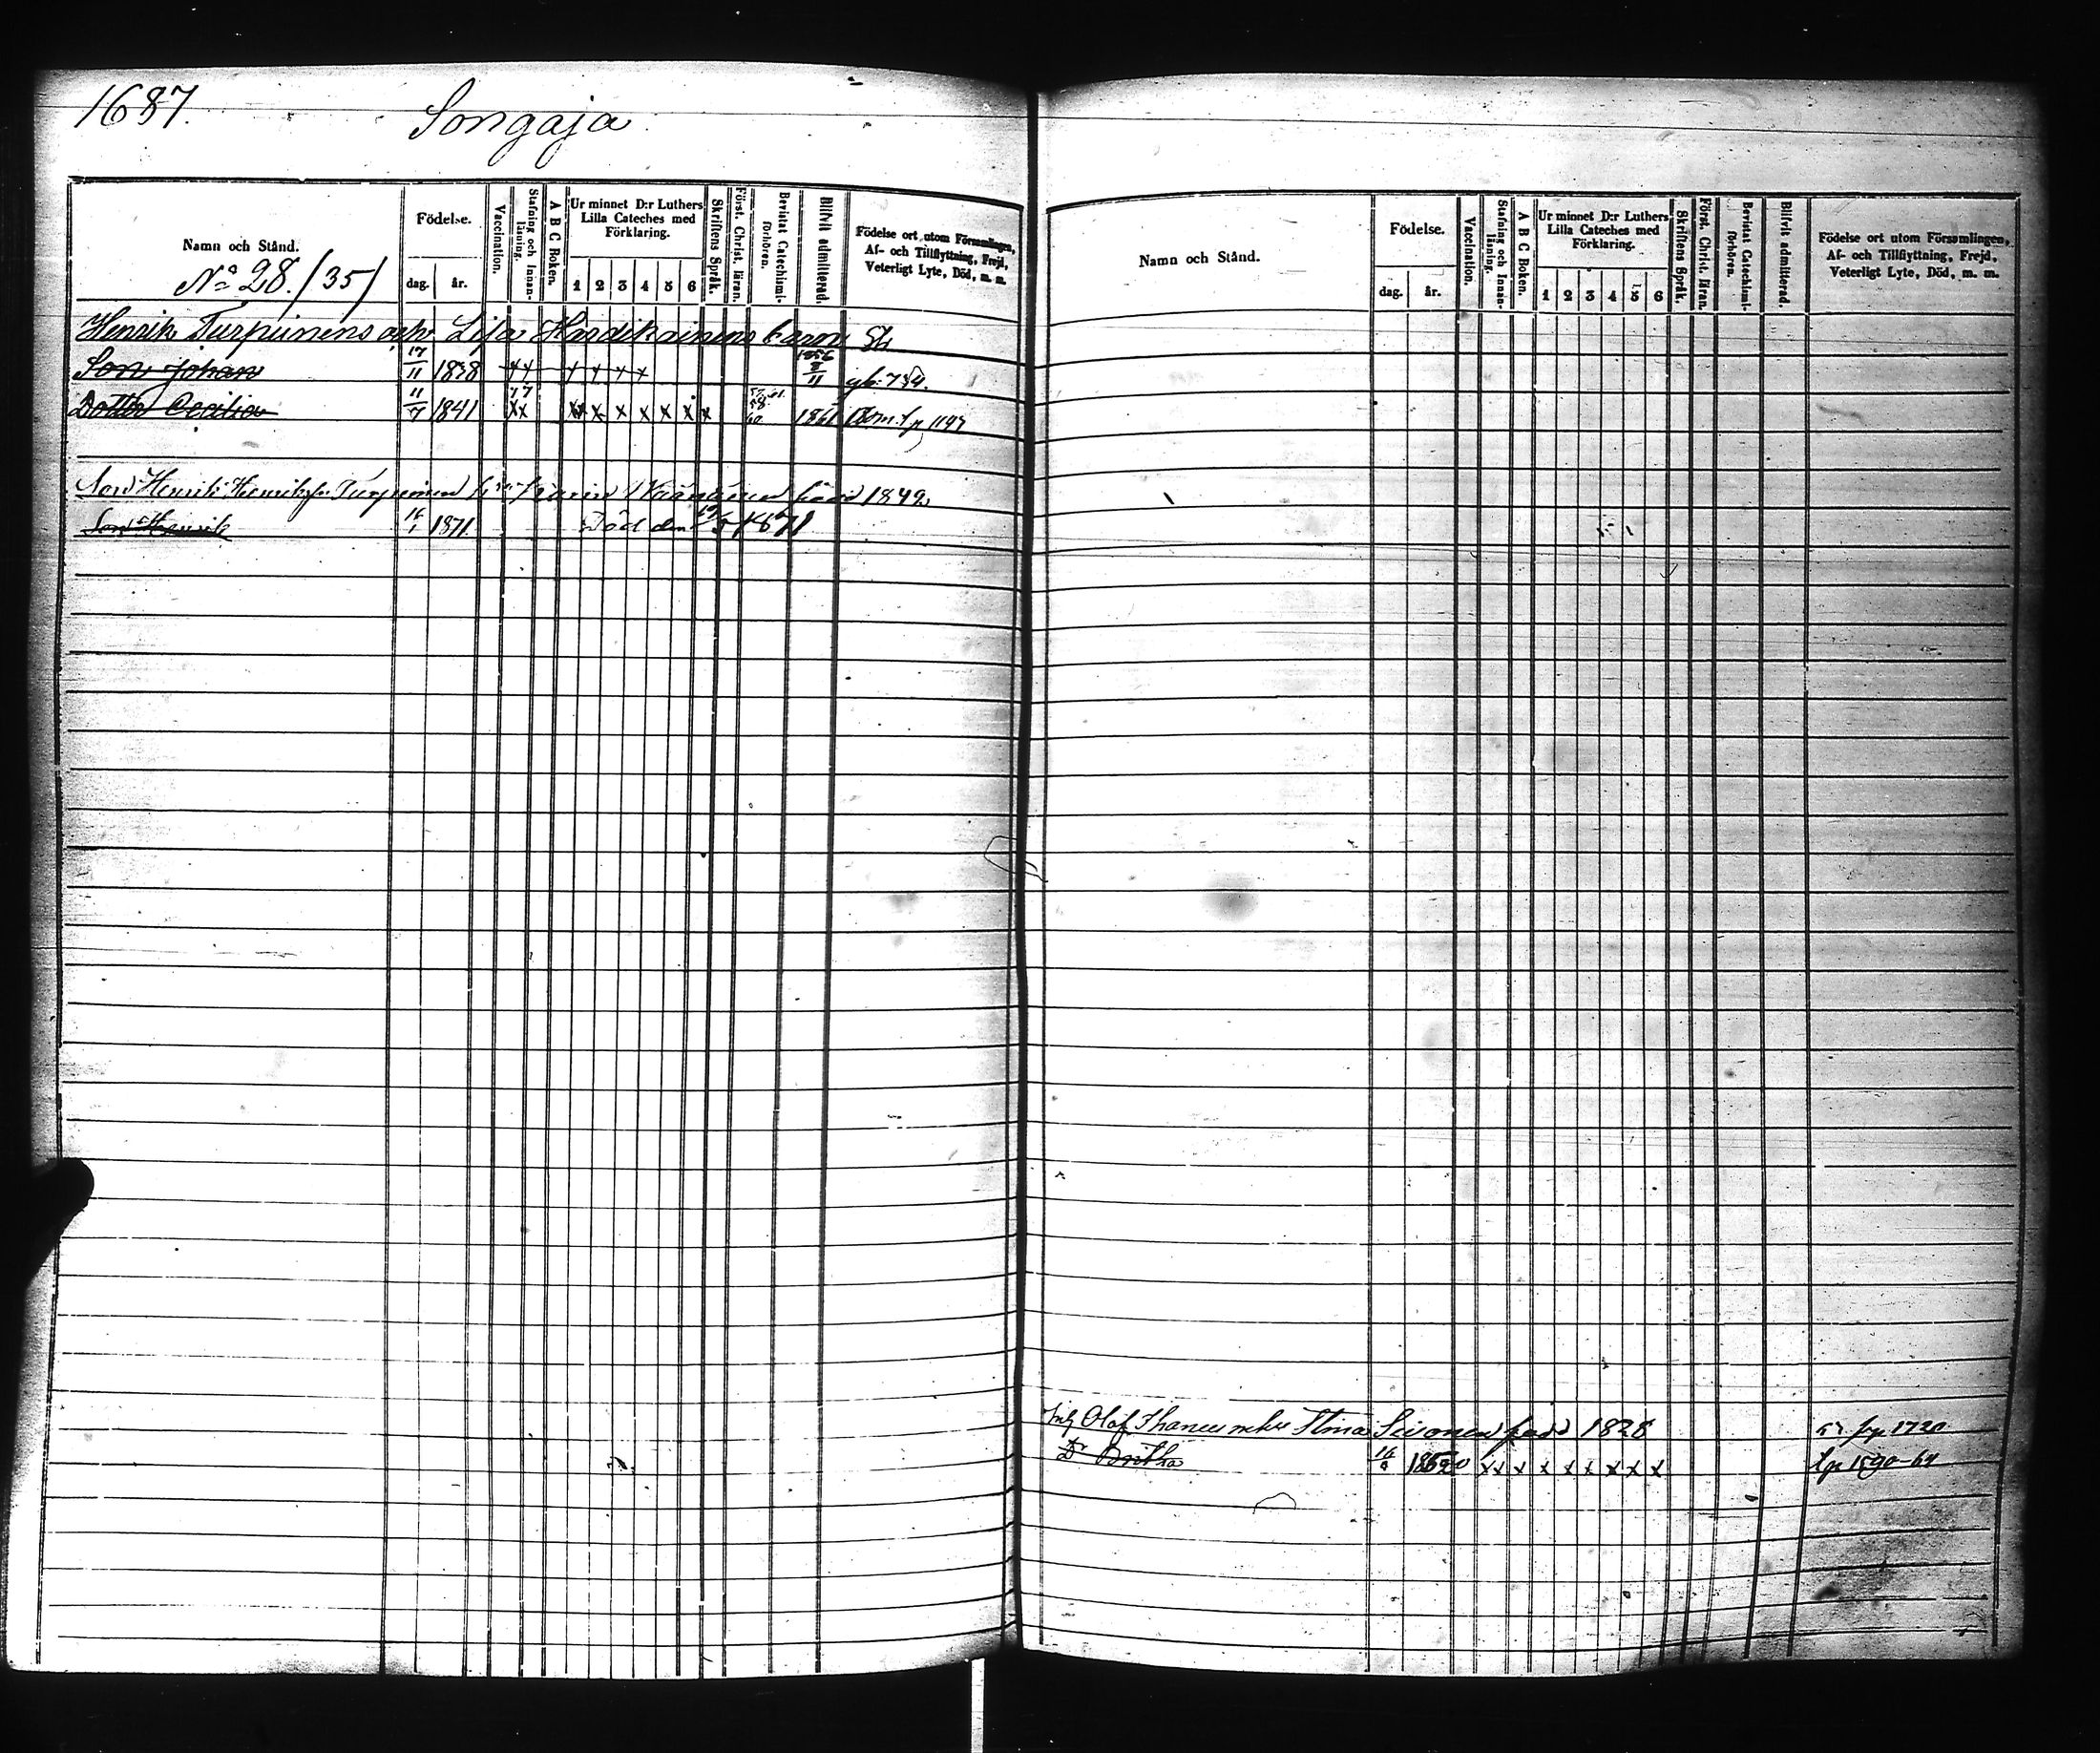 1687.
Songaja
Namn och Stånd.
Nº 28. /35/
Födelse.
dag. år.
Vaccination.
Stafning och Innanläsning.
A B C Boken.
Ur minnet D:r Luthers Lilla Cateches med Förklaring.
1 2 3 4 5 6
Skriftens Språk.
Först. Christ. läran.
Bevistat Catechismiförhören.
Blifvit admitterad.
Födelse ort utom Församlingen, Af- och Tillflyttning, Frejd, Veterligt Lyte, Död, m. m.
Henrik Turpeinens och Lisa Hardikainens barn
Son Johan 17/11 1838 x x x x x x 1856 8/11
Dotter Cecilia 11/7 1841 x x x x x x x x x 1861 1197
Son Henrik Turpeinen född 1842
Son Henrik 16/1 1871 Död den 1871
Namn och Stånd.
Födelse.
dag. år.
Vaccination.
Stafning och Innanläsning.
A B C Boken.
Ur minnet D:r Luthers Lilla Cateches med Förklaring.
1 2 3 4 5 6
Skriftens Språk.
Först. Christ. läran.
Bevistat Catechismiförhören.
Blifvit admitterad.
Födelse ort utom Församlingen, Af- och Tillflyttning, Frejd, Veterligt Lyte, Död, m. m.
Olof Ihanen Stina född 1828 1720
Dr Britha x x x x x x x x x 1590-64